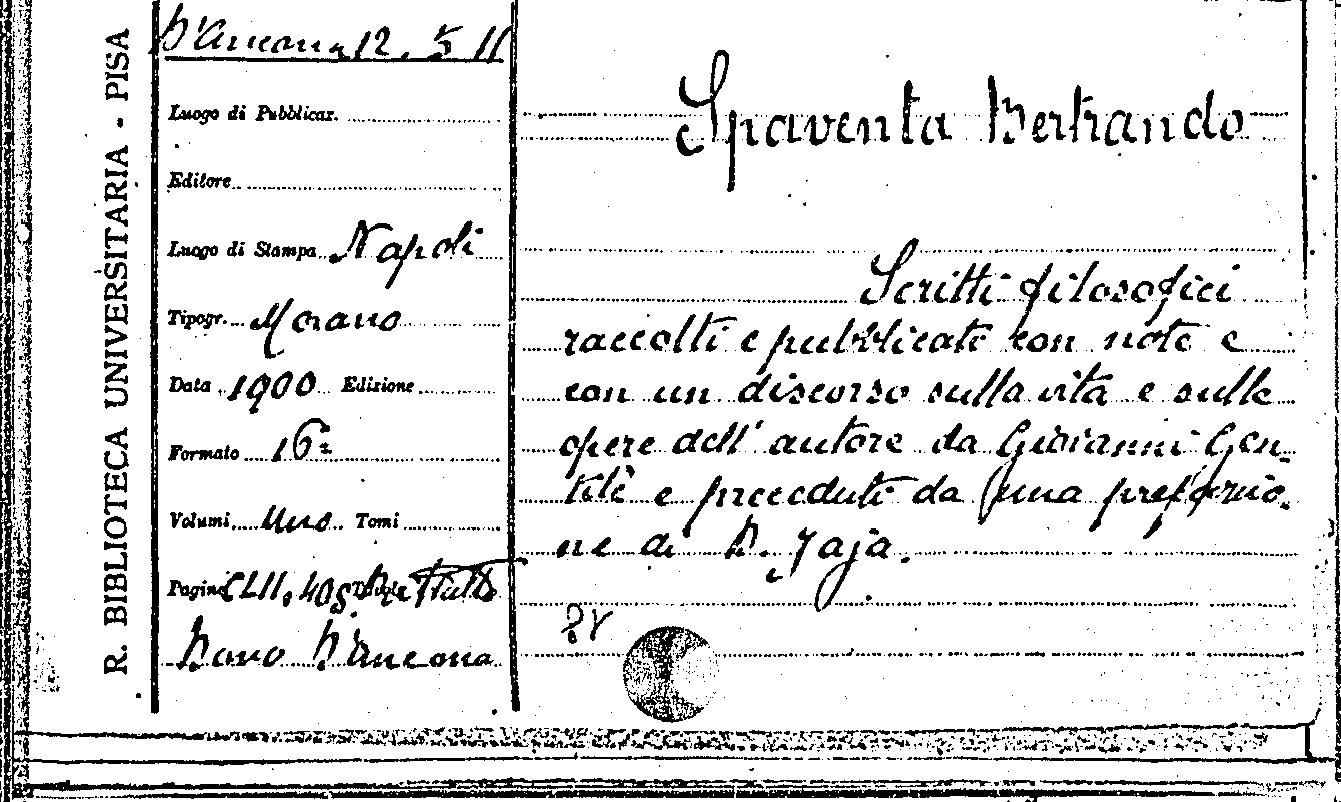 R. BIBLIOTECA UNIVERSITARIA - PISA
D'Ancona 12. 5 11
Luogo di Pubblicaz.
Editore
Luogo di Stampa Napoli
Tipogr. Morano
Data 1900 Edizione
Formato 16º
Volumi uno Tomi
Pagine CLII, 408
Dono D'Ancona
Spaventa Bertrando
Scritti filosofici
raccolti e pubblicati con note e
con un discorso sulla vita e sulle
opere dell' autore da Giovanni Gen-
tile e preceduti da una prefazio-
ne di D. Jaja.